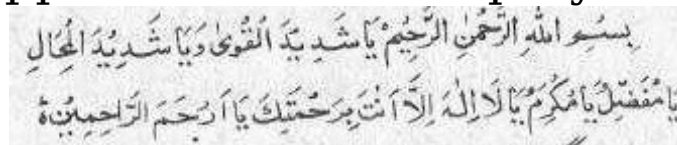 بِسْمِ اللهِ الرَّحْمٰنِ الرَّحِيْمِ يَا شَدِيْدَ الْقُوىٰ وَيَا شَدِيْدَ الْمِحَالِ
يَا مُفَضِّلُ يَا مُكَرِّمُ يَا لَا اِلٰهَ اِلَّا اَنْتَ بِرَحْمَتِكَ يَا اَرْحَمَ الرَّاحِمِيْنَ ۃ